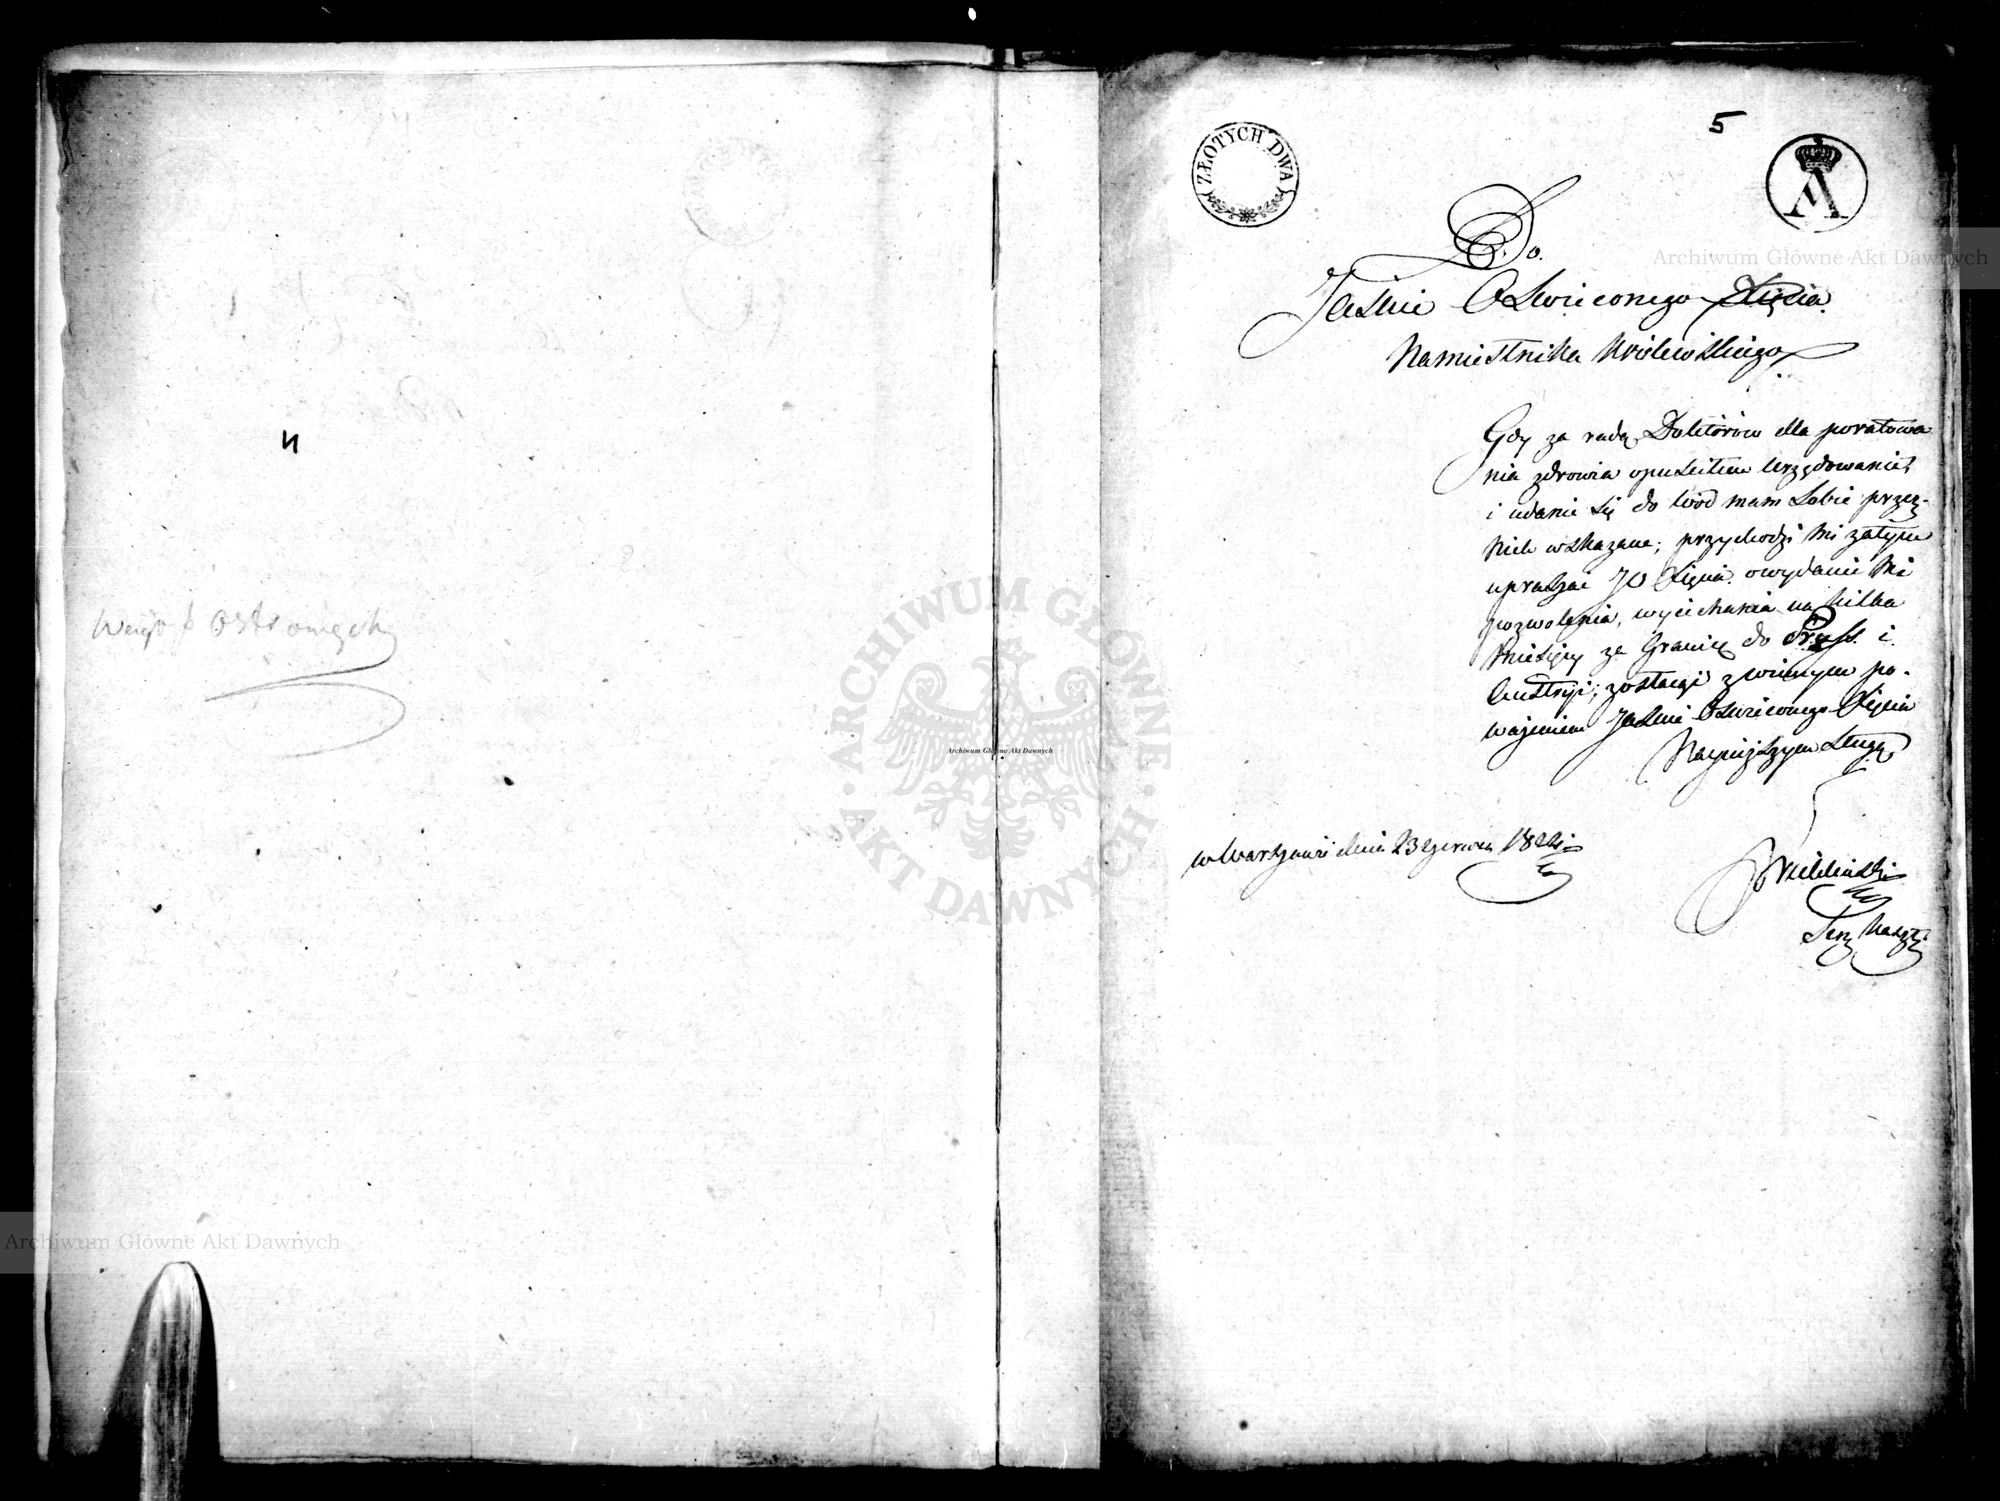 Archiwum Główne Akt Dawnych
ARCHIWUM GŁÓWNE AKT DAWNYCH
Archiwum Główne Akt Dawnych
5
ZŁOTYCH DWA
A
Archiwum Główne Akt Dawnych
Do.
Jaśnie Oświeconego Xięcia
Namiestnika Królewskiego
Gdy za radą Doktórów dla poratowa
nia zdrowia opuściłem Urzędowanie,
i udanie się do wód mam sobie przez
nich wskazane; przychodzi mi zatym
upraszać JO Xięcia o wydanie mi
pozwolenia, wyiechania na kilka
Miesięcy za Granicę do Pruss i
Austryi; zostaię z winnym po-
ważeniem Jaśnie Oświeconego Xięcia
Nayniższym sługą
w Warszawie dnia 23 czerwca